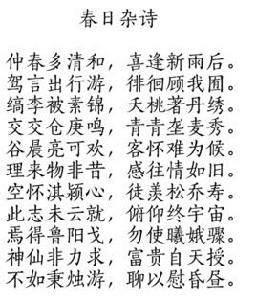 春日杂诗
仲春多清和，喜逢新雨后。
驾言出行游，徘徊顾我囿。
缟李被素锦，夭桃著丹绣。
交交仓庚鸣，青青垄麦秀。
谷晨亮可欢，客怀难为候。
理来物非昔，感往情如旧。
空怀淇颍心，徒羡松乔寿。
此志未云就，俯仰终宇宙。
焉得鲁阳戈，勿使曦娥骤。
神仙非力求，富贵自天授。
不如秉烛游，聊以慰昏昼。